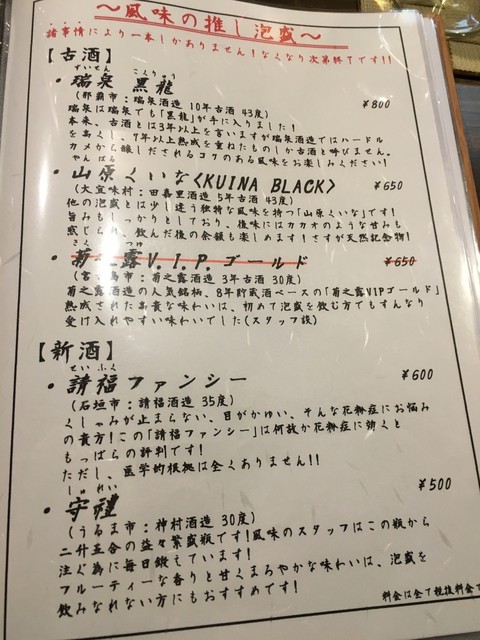 ～風味の推し泡盛～
諸事情により一本しかありません！なくなり次第終了です!!
【古酒】
ずいせん こくりゅう
・瑞泉 黒龍 ¥800
(那覇市：瑞泉酒造 10年古酒 43度)
瑞泉は瑞泉でも「黒龍」が手に入りました！
本来、古酒とは3年以上を言いますが瑞泉酒造ではハードル
を高くし、7年以上熟成を重ねたものしか古酒と呼びません。
カメから醸しだされるコクのある風味をお楽しみください！
やんばる
・山原くいな<KUINA BLACK> ¥650
(大宜味村：田嘉里酒造 5年古酒 43度)
他の泡盛とは少し違う独特な風味を持つ「山原くいな」です！
旨みもしっかりとしており、後味にはカカオのような甘みも
感じられ、飲んだ後の余韻も楽しめます！さすが天然記念物！
きくのつゆ
・菊之露V.I.P.ゴールド ¥650
(宮古島市：菊之露酒造 3年古酒 30度)
菊之露酒造の人気銘柄、8年貯蔵酒ベースの「菊之露VIPゴールド」
熟成された高貴な味わいは、初めて泡盛を飲む方でもすんなり
受け入れやすい味わいでした(スタッフ談)
【新酒】
せいふく
・請福ファンシー ¥600
(石垣市：請福酒造 35度)
くしゃみが止まらない、目がかゆい、そんな花粉症にお悩み
の貴方！この「請福ファンシー」は何故か花粉症に効くと
もっぱらの評判です！
ただし、医学的根拠は全くありません!!
しゅれい
・守禮 ¥500
(うるま市：神村酒造 30度)
二升五合の益々繁盛瓶です！風味のスタッフはこの瓶から
注ぐ為に毎日鍛えています！
フルーティーな香りと甘くまろやかな味わいは、泡盛を
飲みなれない方にもおすすめです！
料金は全て税抜料金で